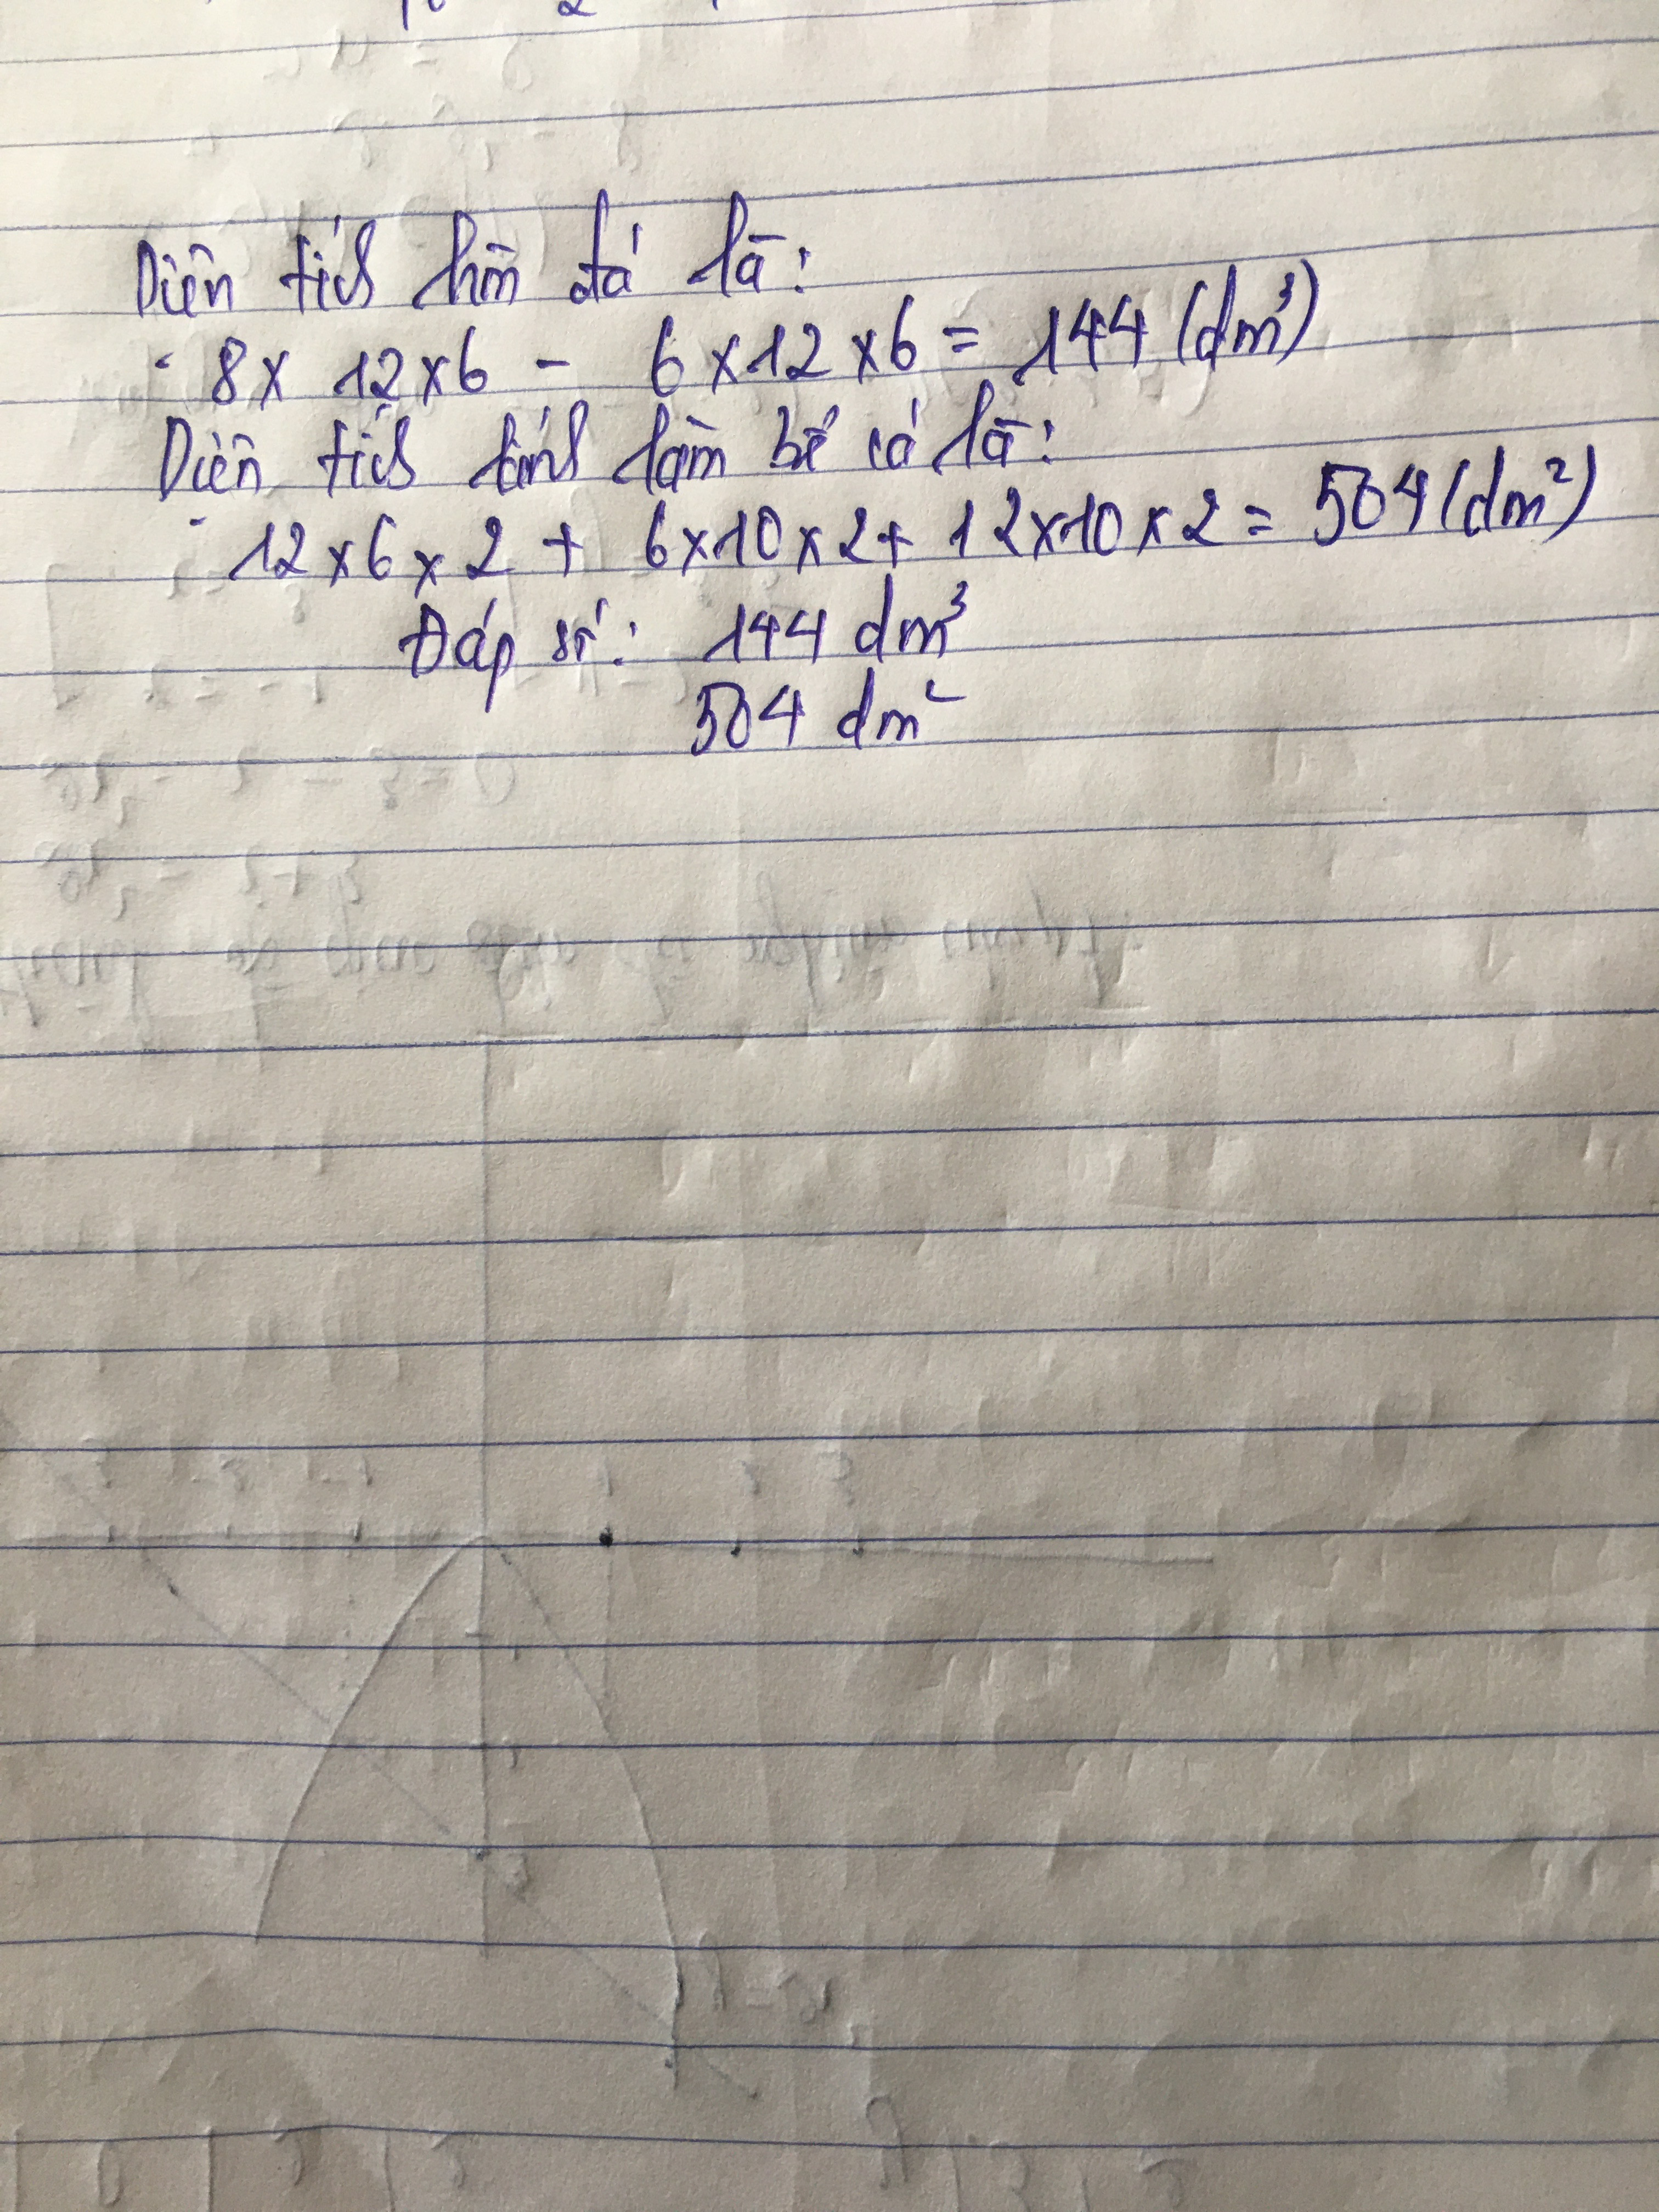 Diện tích hòn đá là:
8 x 12 x 6 - 6 x 12 x 6 = 144 (dm³)
Diện tích kính làm bể cá là:
12 x 6 x 2 + 6 x 10 x 2 + 12 x 10 x 2 = 504 (dm²)
Đáp số: 144 dm³
504 dm²